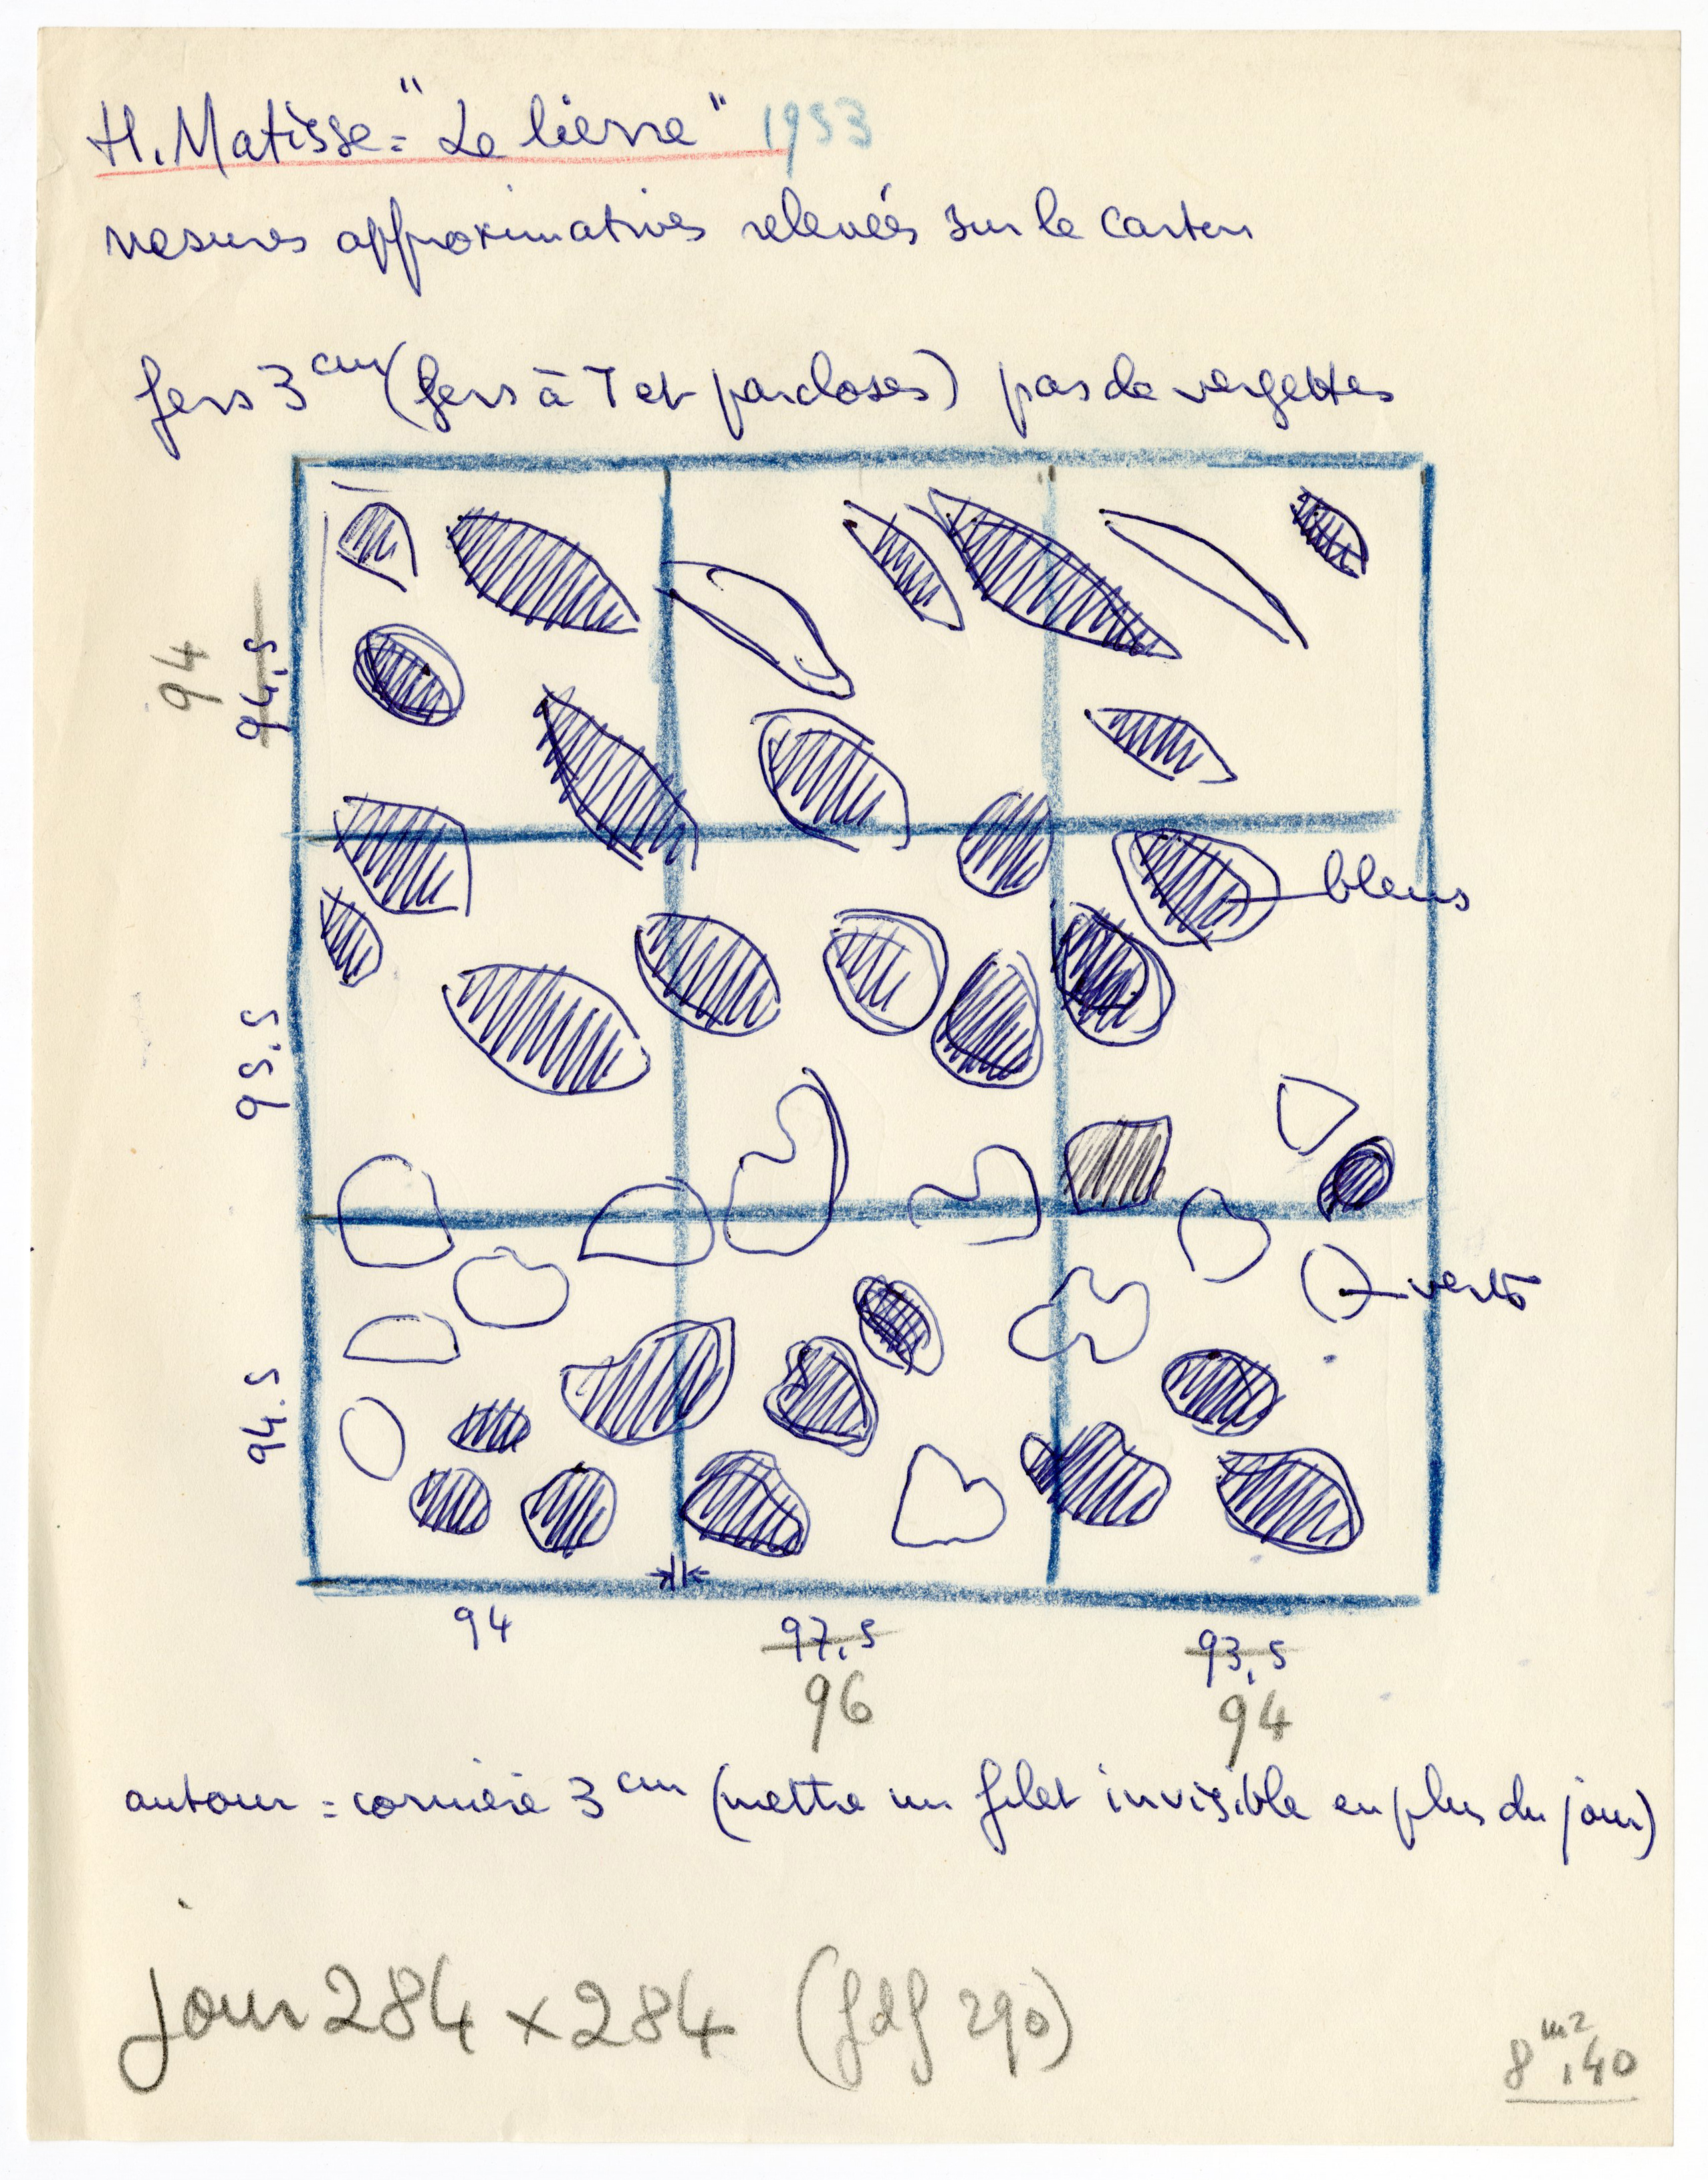 H. Matisse = "Le lierre" 1953
mesures approximatives relevées sur le carton
fers 3 cm (fers à T et parcloses) pas de vergettes
94
94,5
bleus
95.5
verts
94.5
94
97,5
93,5
96
94
autour = cornière 3 cm (mettre un filet invisible en plus du jour)
jour 284 x 284 (fdf 290)
8 m2,40